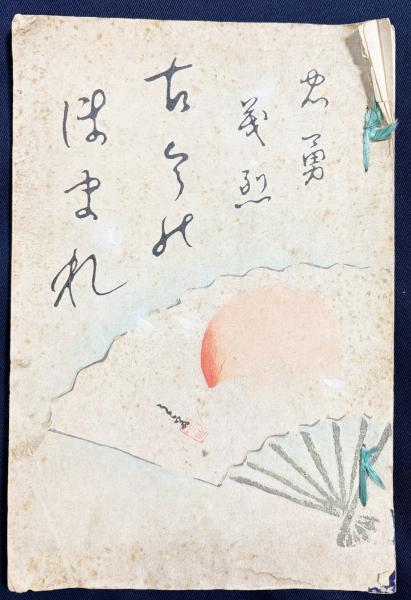 忠勇
義烈
古今の
ほまれ